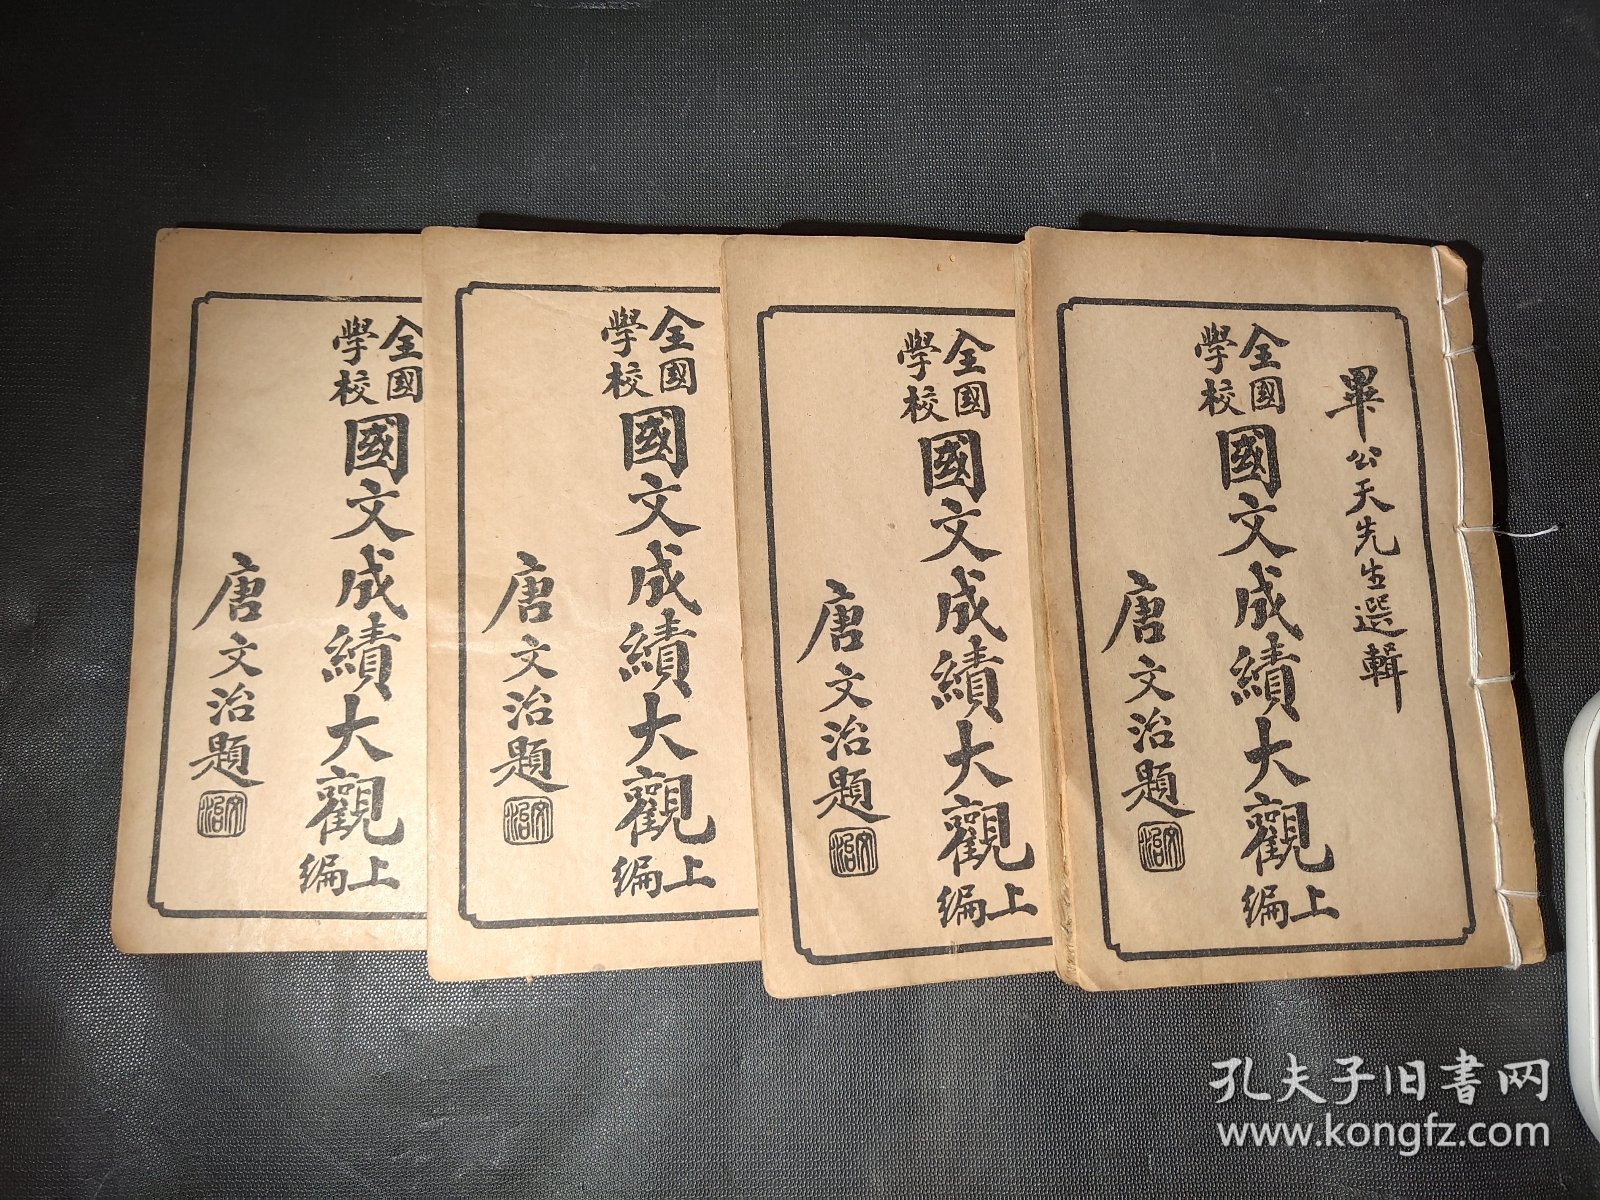 畢公天先生選輯
全國學校國文成績大觀上編
唐文治題
文治
全國學校國文成績大觀上編
唐文治題
文治
全國學校國文成績大觀上編
唐文治題
文治
全國學校國文成績大觀上編
唐文治題
文治
孔夫子旧書网
www.kongfz.com